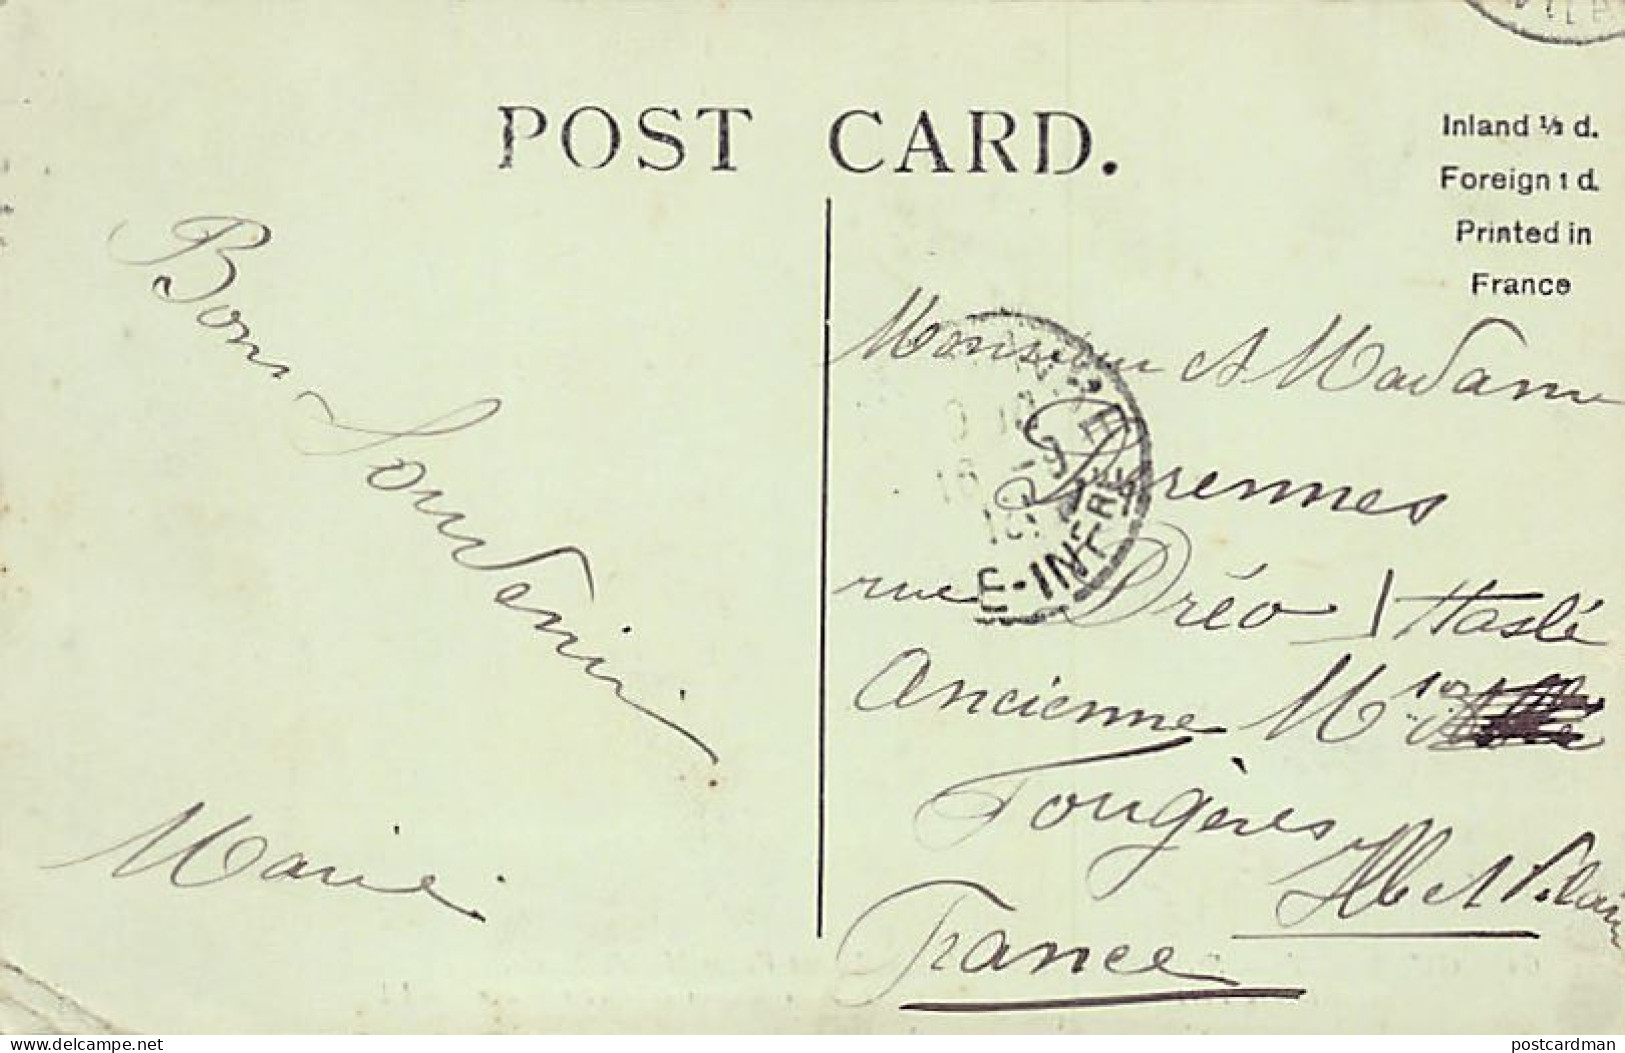 POST CARD.
Inland ½ d.
Foreign 1 d.
Printed in
France
Bon Souvenir
Marie.
Monsieur et Madame
rue Dréo
Ancienne M
Fougères
Ille et Vilaine
France
E-INFRE
delcampe.net
postcardman